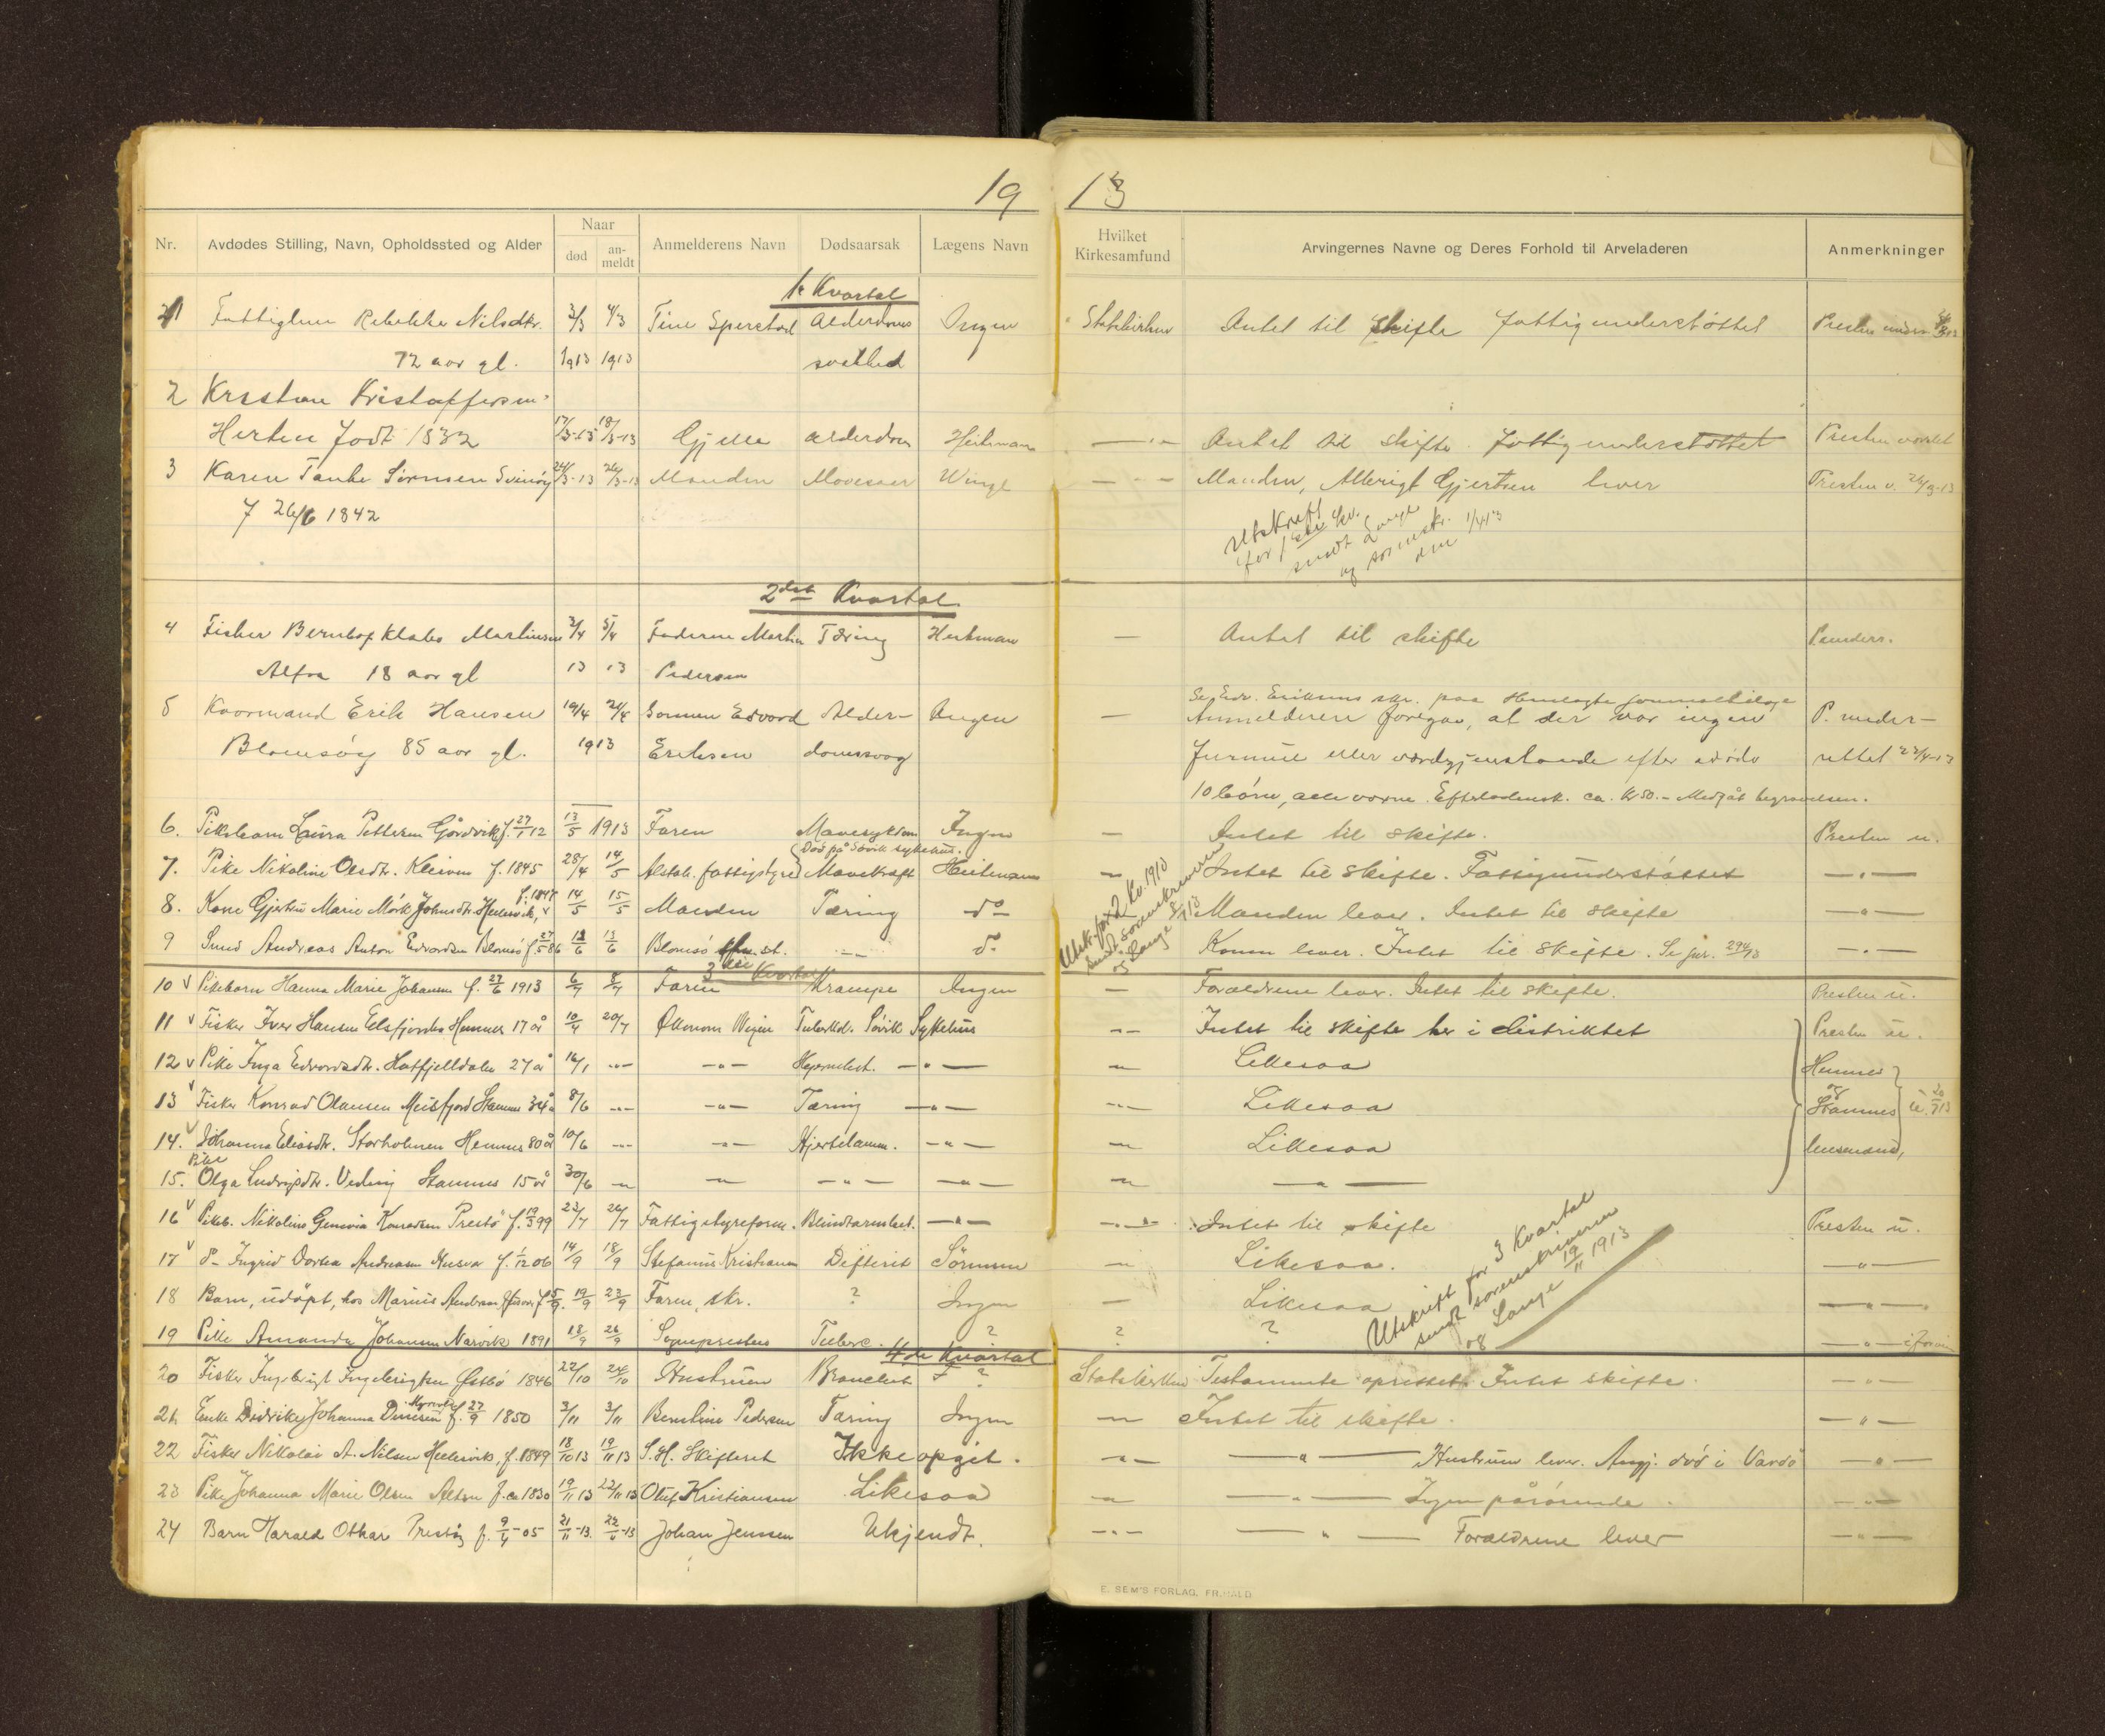 19 13
Nr. Avdødes Stilling, Navn, Opholdssted og Alder Naar død an-meldt Anmelderens Navn Dødsaarsak Lægens Navn Hvilket Kirkesamfund Arvingernes Navne og Deres Forhold til Arveladeren Anmerkninger
1ste Kvartal
1 Fattiglem Rebekka Nilsdtr. 2/3 4/3 Tine Sperstad Alderdoms Ingen Statskirken Intet til skifte fattigunderstøttet Presten underr.
72 aar gl. 1913 1913 svakhed
2 Kristian Kristoffersen
Herten født 1832 17/3-13 18/3-13 Gjelle alderdom Heitman —"— Intet til skifte. fattigunderstøttet Presten varslet
3 Karen Tanke Sørensen Svinøy 24/3-13 26/3-13 Manden Mavesaar Winge —"— Manden, Alterigt Gjertsen lever Presten u. 26/3-13
f 26/6 1842
Utskrift
for 1ste kv.
sendt Lange
og sorenskr.
den 1/4 13
2det Kvartal
4 Fisker Bernhof Klabo Martinsen 3/4 5/4 Faderen Martin Tæring Heitman — Intet til skifte P underr.
Alfra 18 aar gl 13 13 Pedersen
Se Edv. Eriksens skr. paa Henlagte journalbilage
5 Kaarmand Erik Hansen 19/4 21/4 Sønnen Edvard Alder- Ingen — Anmelderen foregav, at der var ingen P. under-
Blomsøy 85 aar gl. 1913 Eriksen domssvag formue eller værdgjenstande efter avdøde rettet 22/4-13
10 børn, alle voxne. Efterladensk. ca. kr 50.- Medgåt begravelsen.
6. Pikebarn Laura Pettersen Gårdvik f. 27/1 12 13/5 1913 Faren Mavesykdom Ingen — Intet til skifte. Presten u.
Død på Søvik sykehus.
7. Pike Nikoline Olsdtr. Kleiven f. 1845 28/4 14/5 Alstah. fattigstyre Mavekræft Heitmann — Intet til skifte. Fattigunderstøttet —"—
8. Kone Gjertru Marie Mørk Johnsdtr. Hellesvik, f. 1847 14/5 15/5 Manden Tæring do — Manden lever. Intet til skifte —"—
9 Smed Andreas Anton Edvardsen Blomsø f. 27/5 86 12/6 13/6 Blomsø —"— do Konen lever. Intet til skifte. Se jur. 294/13 —"—
Utskr. for 2 Kv. 1913
sendt sorenskriveren
og Lange 8/7 13
3die Kvartal
10 v Pikebarn Hanna Marie Johansen f. 27/6 1913 6/7 8/7 Faren Krampe Ingen — Forældrene lever. Intet til skifte. Presten u.
11 v Fisker Iver Hansen Elsfjorden Hemnes 17 år 10/4 20/7 Økonom Tuberkul. Søvik Sykehus —"— Intet til skifte her i distriktet Presten u.
12 v Pike Inga Edvardsdtr. Hatfjelldalen 27 år 16/1 —"— —"— Hjernebet. —"— —"— Likesaa Hemnes
13 v Fisker Konrad Olausen Meisfjord Stamnes 34 år 8/6 —"— —"— Tæring —"— —"— Likesaa og Stamnes u. 20/7 13
14. v Johanna Eliasdtr. Storholmen Hemnes 80 år 10/6 —"— —"— Hjertelam. —"— —"— Likesaa lensmænd,
15. Pike Olga Ludvigsdtr. Veding Stamnes 15 år 30/6 —"— —"— —"— —"— —"— —"—
16 v Pikeb. Nikoline Genovia Konradsen Prestø f. 19/3 99 23/7 26/7 Fattigstyreform. Blindtarmbet. —"— —"— Intet til skifte Presten u.
17 v do Ingrid Dortea Andreasen Husvær f. 1/12 06 14/9 18/9 Stefanus Kristiansen Difterit Sørensen —"— Likesaa. —"—
18 Barn, udøpt, hos Marius Andersen Husvær f. 15/9. 19/9 22/9 Faren, skr. ? Ingen — Likesaa —"—
19 Pike Amanda Johansen Narvik 1891 18/9 26/9 Sognepresten Tuberc. ? ? ? —"—
Utskrift for 3 Kvartal
sendt sorenskriveren
og Lange 19/11 1913
4de Kvartal
20 Fisker Ingebrigt Ingebrigtsen Østbø 1846 22/10 24/10 Hustruen ? Statskirken Testamente oprettet. Intet skifte. —"—
21. Enke Didrikke Johanna f. 27/9 1850 3/11 3/11 Berntine Pedersen Tæring Ingen —"— Intet til skifte. —"—
22 Fisker Nikolai A. Nilsen Hellesvik, f. 1849 18/10 13 19/11 13 S. H. Skifteret Ikke opgit. —"— —"— Hustruen lever. Angj. død i Vardø —"—
23 Pike Johanna Marie Olsen Altra f. ca 1830 19/11 13 22/11 13 Oluf Kristiansen Likesaa —"— —"— Ingen pårørende. —"—
24 Barn Harald Otkar Prestøy f. 9/4-05 21/11-13. 22/11-13 Johan Jenssen Ukjendt. —"— —"— Forældrene lever —"—
E. SEM'S FORLAG, FR.HALD